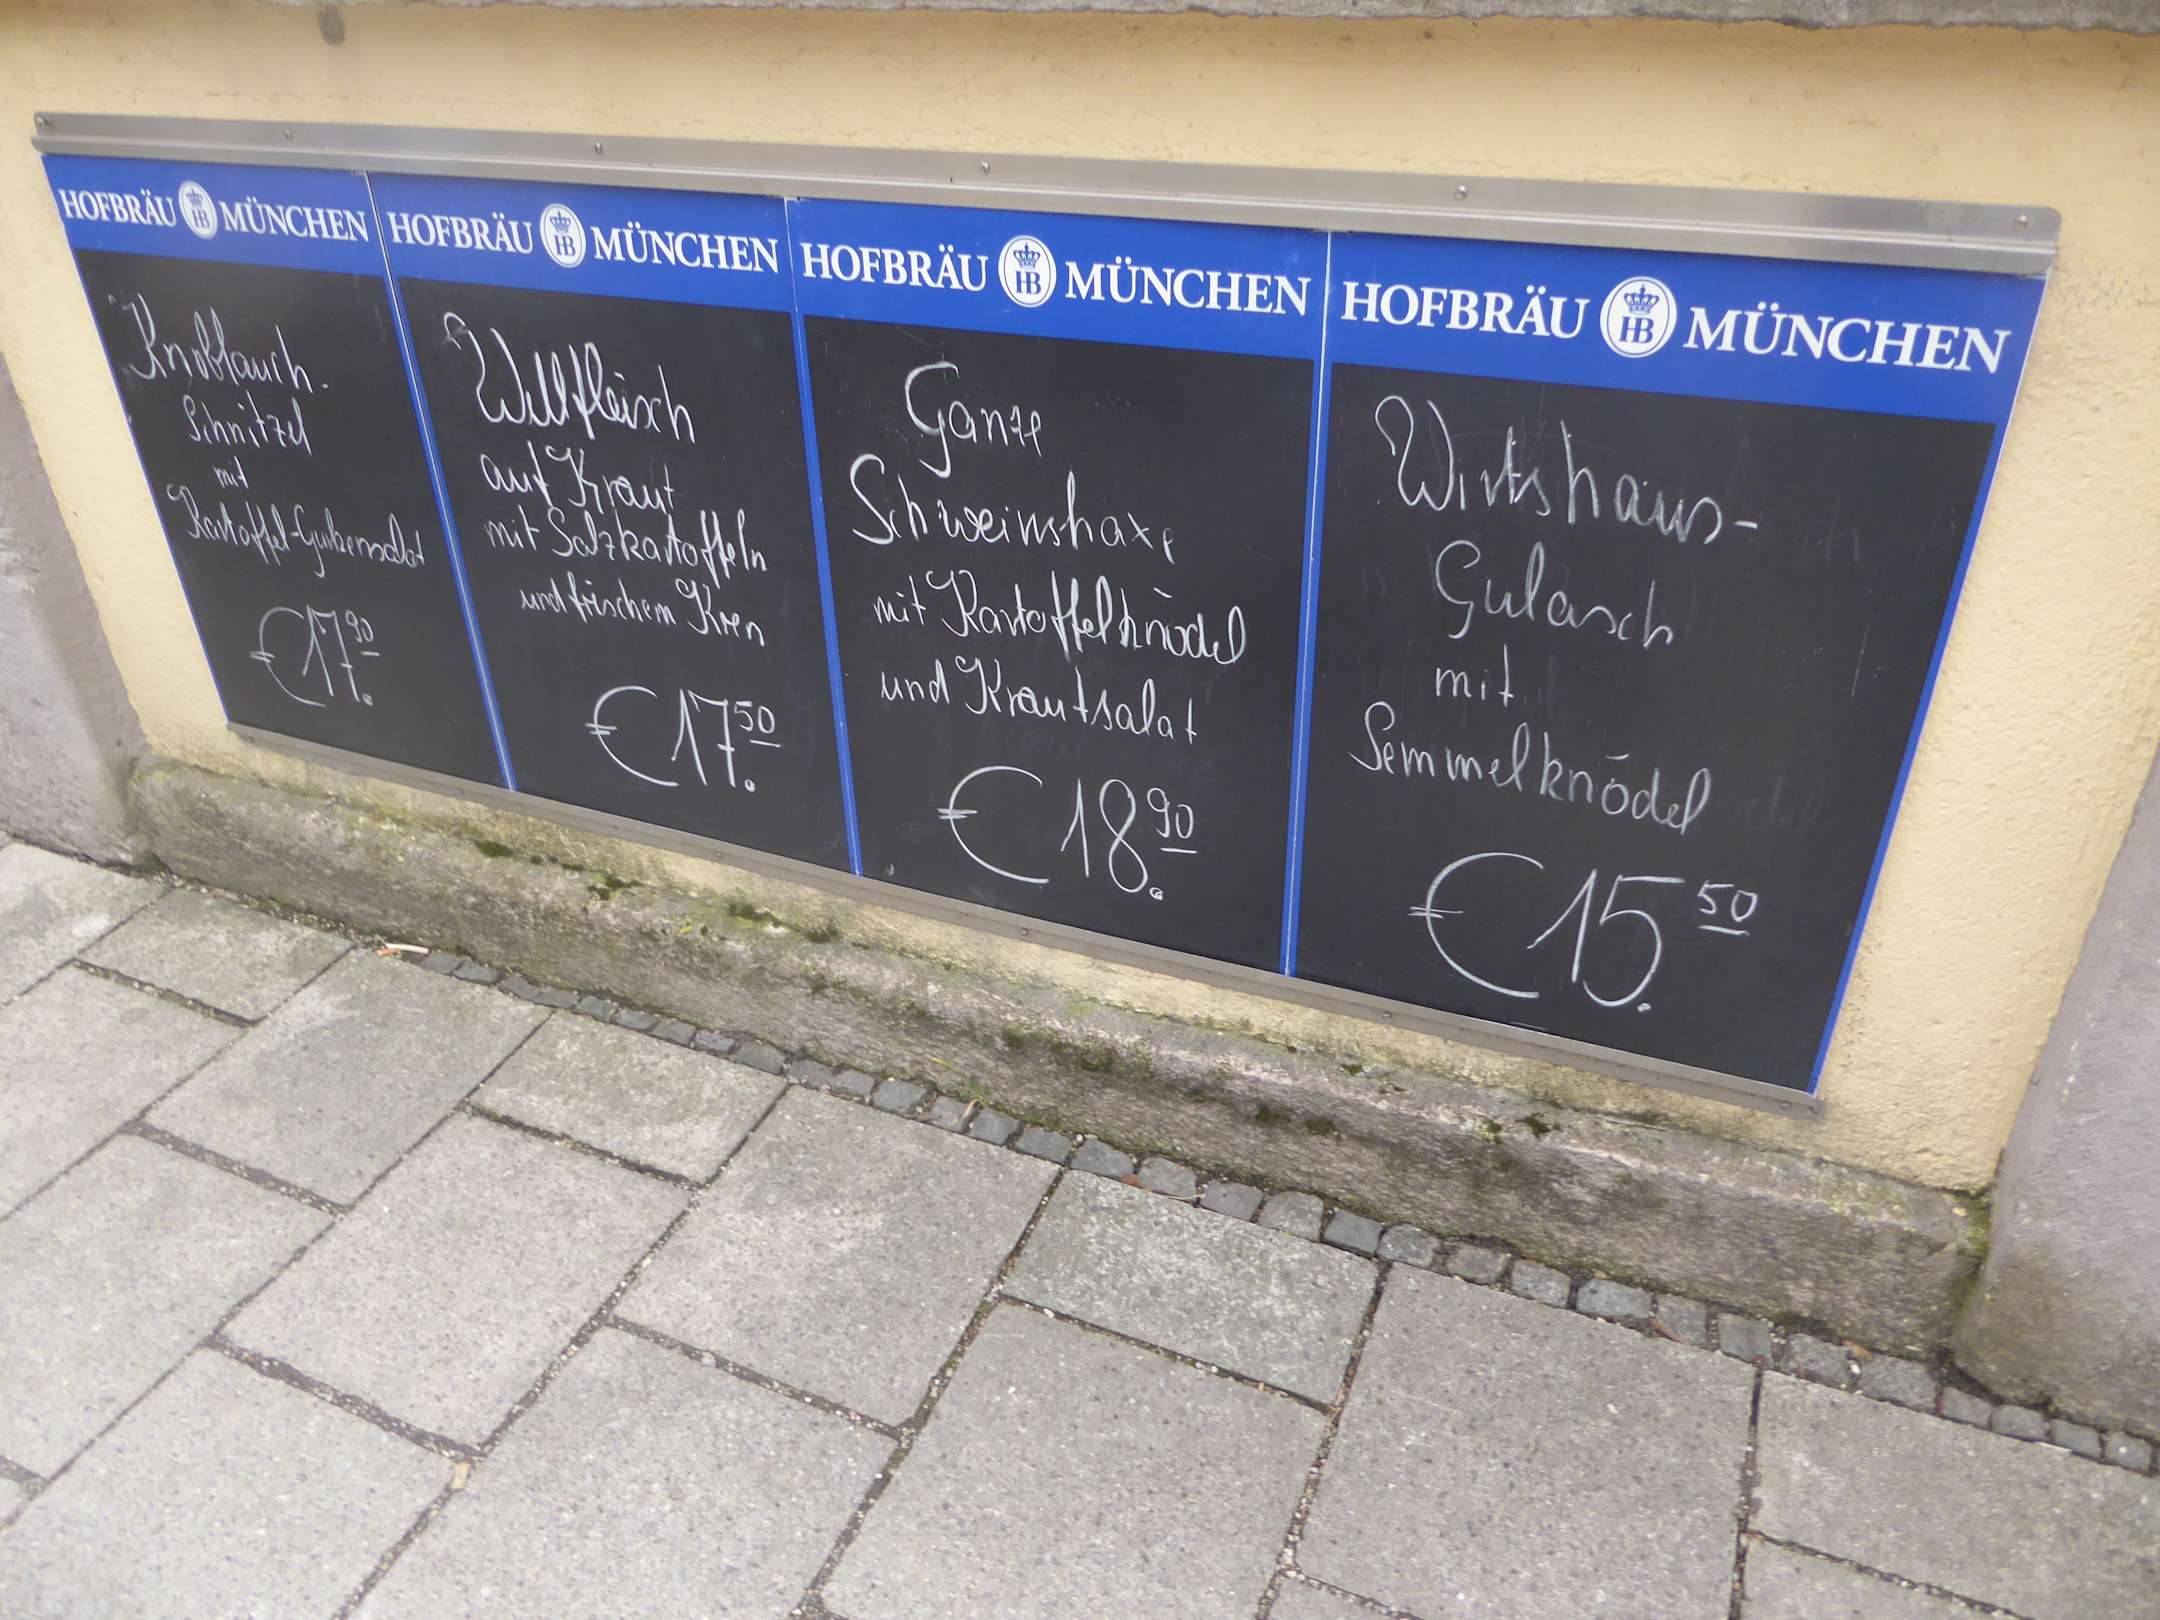 HOFBRÄU HB MÜNCHEN
Knoblauch-
Schnitzel
mit
Kartoffel-Gurkensalat
€ 17.90
HOFBRÄU HB MÜNCHEN
Wellfleisch
auf Kraut
mit Salzkartoffeln
und frischem Kren
€ 17.50
HOFBRÄU HB MÜNCHEN
Ganze
Schweinshaxe
mit Kartoffelknödel
und Krautsalat
€ 18.90
HOFBRÄU HB MÜNCHEN
Wirtshaus-
Gulasch
mit
Semmelknödel
€ 15.50